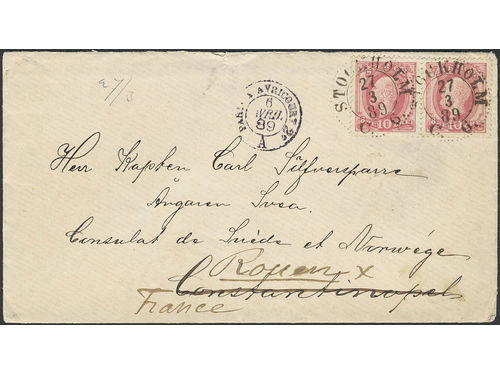 STOCKHOLM
27
3
89
STOCKHOLM
27
3
89
10
10
27/3
PARIS A AVRICOURT
6
AVRIL
89
A
Herr Kapten Carl Silfversparre
Ångaren Svea
Consulat de Suéde et Norwége
Rouen x
Constantinopel
France